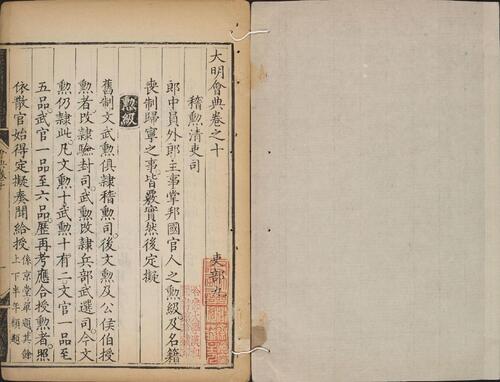 大明會典卷之十
吏部九
稽勲清吏司
郎中員外郎主事掌邦國官人之勲級及名籍
喪制歸寧之事皆覈實然後定擬
勲級
舊制文武勲俱隷稽勲司後文勲及公侯伯授
勲者改隷驗封司武勲改隷兵部武選司今文
勲仍隷此凡文勲十武勲十有二文官一品至
五品武官一品至六品歷再考應合授勲者照
依散官始得定擬奏聞給授係京堂單題其餘
上下半年類題